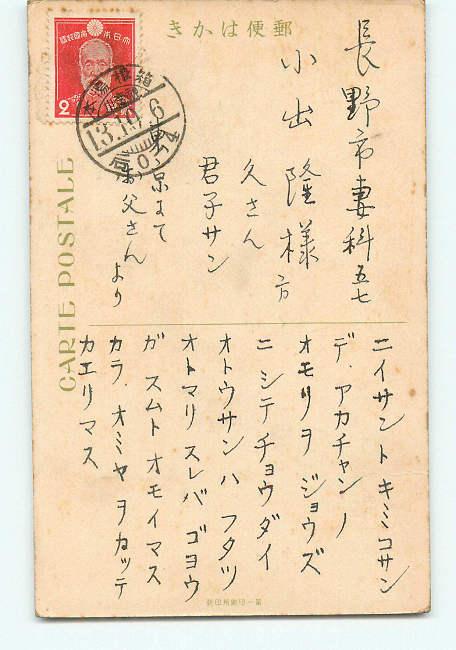 郵便はかき
大日本帝國郵便
2
箱根
13.10.6
CARTE POSTALE
長野市妻科五七
小出隆様方
久さん
君子サン
東京にて
お父さんより
ニイサントキミコサン
デ、アカチャンノ
オモリヲジョウズ
ニシテチョウダイ
オトウサンハフタツ
オトマリスレバゴヨウ
ガスムトオモイマス
カラ、オミヤヲカッテ
カエリマス